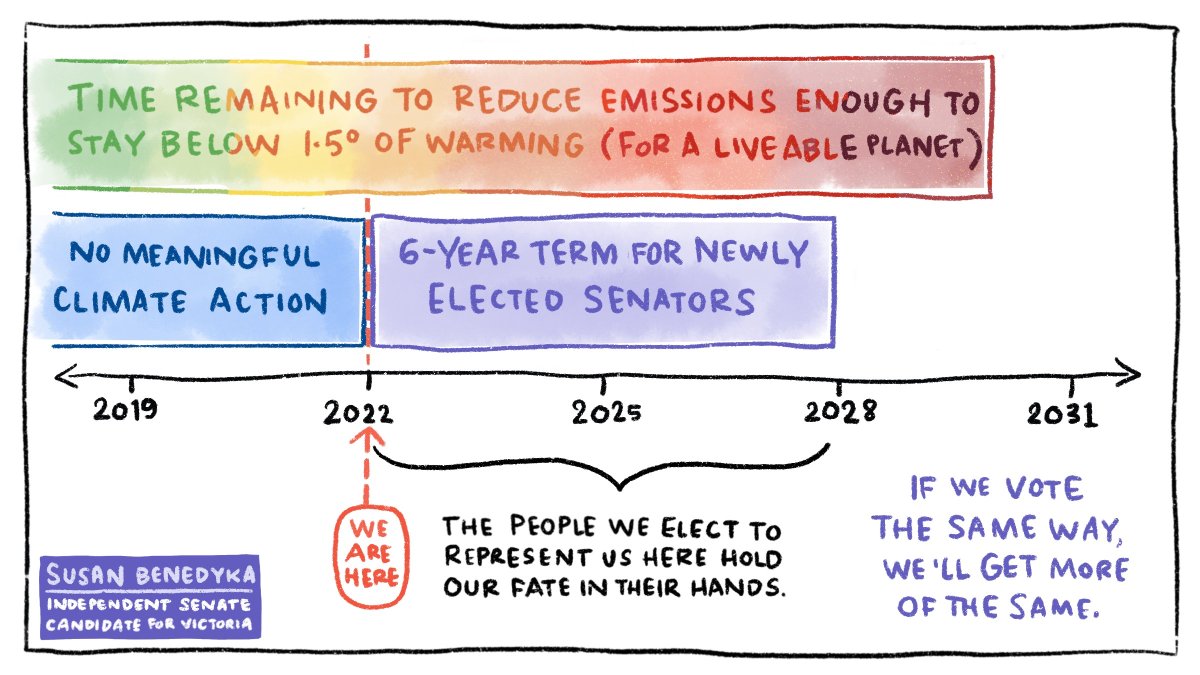 TIME REMAINING TO REDUCE EMISSIONS ENOUGH TO
STAY BELOW 1.5° OF WARMING (FOR A LIVEABLE PLANET)
NO MEANINGFUL
CLIMATE ACTION
6-YEAR TERM FOR NEWLY
ELECTED SENATORS
2019
2022
2025
2028
2031
WE
ARE
HERE
THE PEOPLE WE ELECT TO
REPRESENT US HERE HOLD
OUR FATE IN THEIR HANDS.
IF WE VOTE
THE SAME WAY,
WE'LL GET MORE
OF THE SAME.
SUSAN BENEDYKA
INDEPENDENT SENATE
CANDIDATE FOR VICTORIA